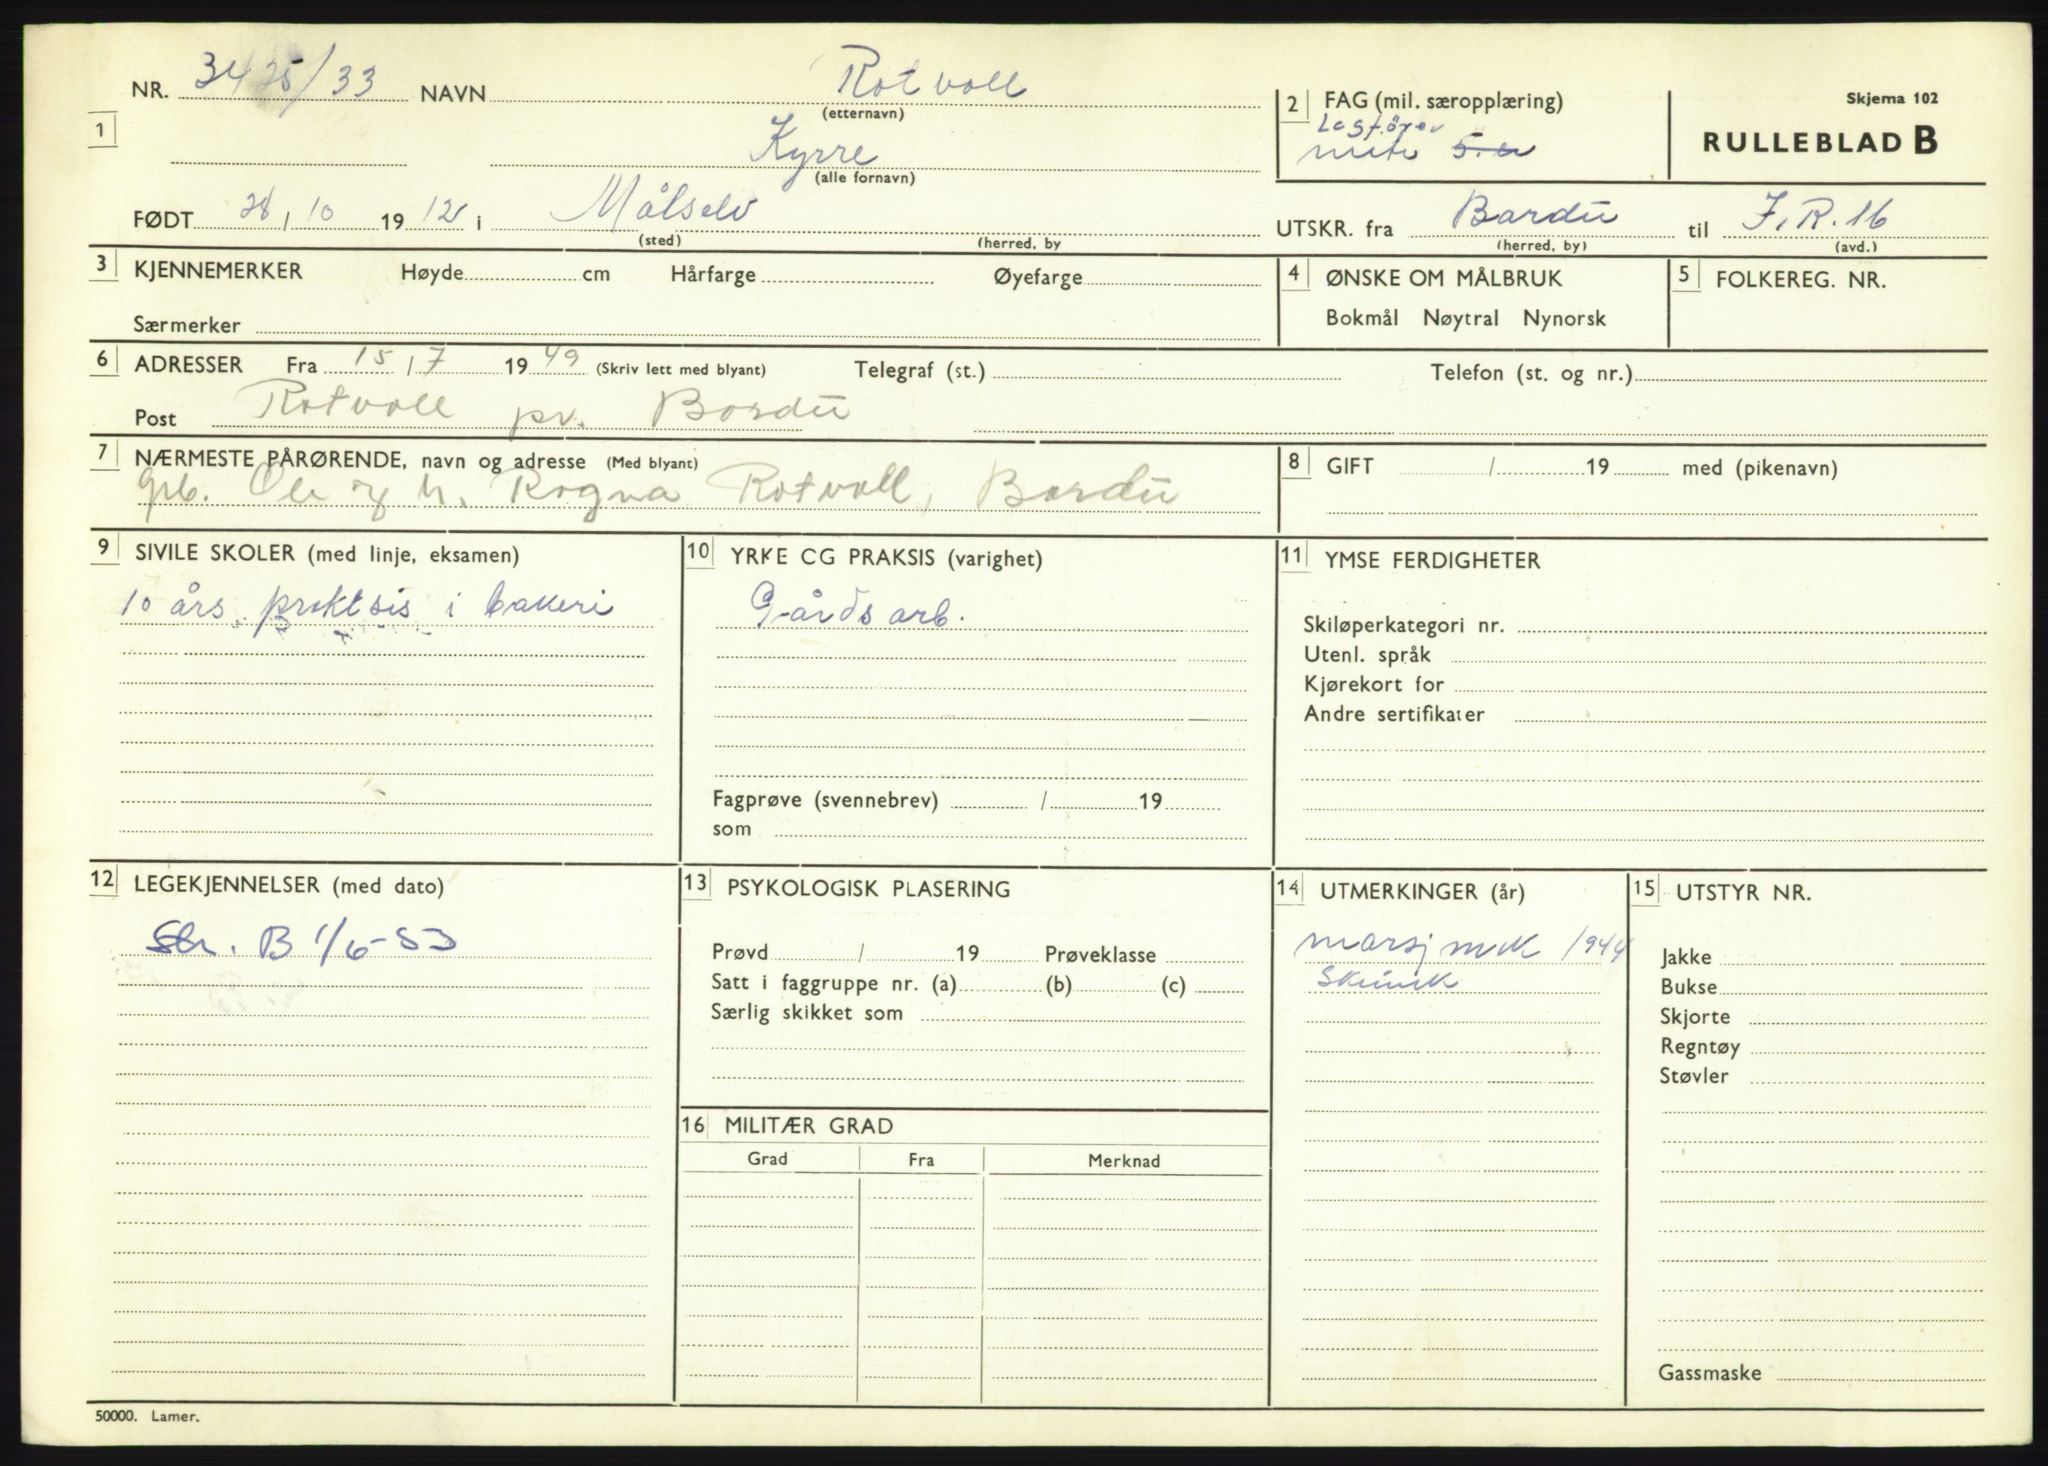 NR. 3425/33 NAVN Rotvoll
(etternavn)
2 FAG (mil. særopplæring)
Skjema 102
1
Kyrre
(alle fornavn)
mitr
RULLEBLAD B
FØDT 28/10 1912 i Målselv
(sted) (herred, by
UTSKR. fra Bardu til I.R. 16
(herred, by) (avd.)
3 KJENNEMERKER Høyde cm Hårfarge Øyefarge
Særmerker
4 ØNSKE OM MÅLBRUK
Bokmål Nøytral Nynorsk
5 FOLKEREG. NR.
6 ADRESSER Fra 15/7 1949 (Skriv lett med blyant) Telegraf (st.) Telefon (st. og nr.)
Post Rotvoll pr. Bardu
7 NÆRMESTE PÅRØRENDE, navn og adresse (Med blyant)
grb. Ole og h. Ragna Rotvoll, Bardu
8 GIFT / 19 med (pikenavn)
9 SIVILE SKOLER (med linje, eksamen)
10 års praktsis i bakeri
10 YRKE CG PRAKSIS (varighet)
Gårdsarb.
Fagprøve (svennebrev) / 19
som
11 YMSE FERDIGHETER
Skiløperkategori nr.
Utenl. språk
Kjørekort for
Andre sertifikater
12 LEGEKJENNELSER (med dato)
B 1/6-53
13 PSYKOLOGISK PLASERING
Prøvd / 19 Prøveklasse
Satt i faggruppe nr. (a) (b) (c)
Særlig skikket som
14 UTMERKINGER (år)
marsjmrk 1944
Skimrk
15 UTSTYR NR.
Jakke
Bukse
Skjorte
Regntøy
Støvler
Gassmaske
16 MILITÆR GRAD
Grad Fra Merknad
50000. Lamer.